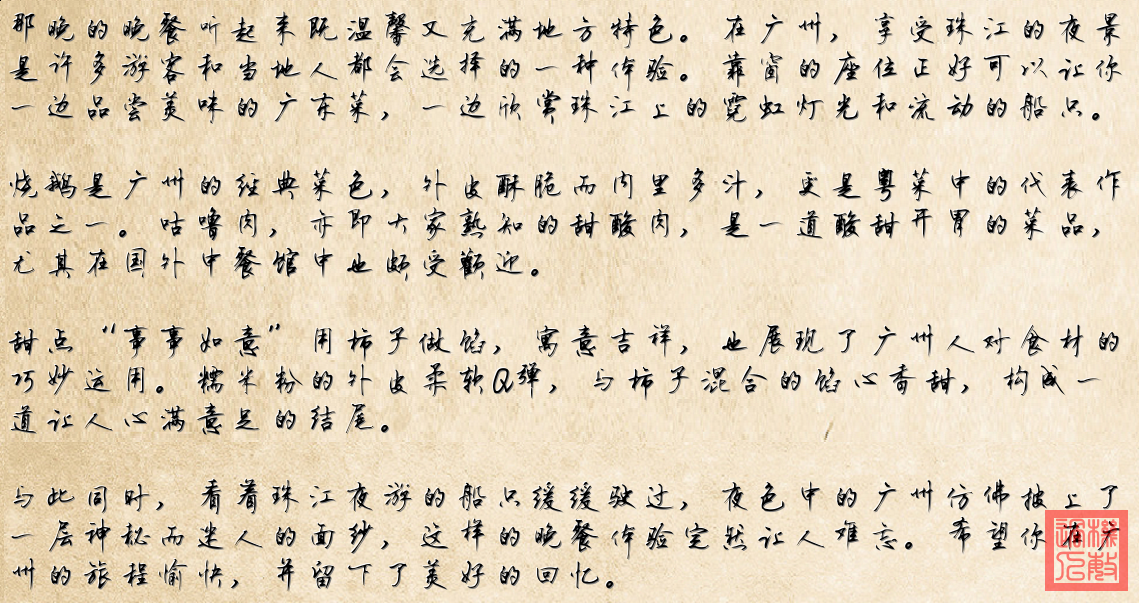 那晚的晚餐听起来既温馨又充满地方特色。在广州，享受珠江的夜景
是许多游客和当地人都会选择的一种体验。靠窗的座位正好可以让你
一边品尝美味的广东菜，一边欣赏珠江上的霓虹灯光和流动的船只。
烧鹅是广州的经典菜色，外皮酥脆而肉里多汁，更是粤菜中的代表作
品之一。咕噜肉，亦即大家熟知的甜酸肉，是一道酸甜开胃的菜品，
尤其在国外中餐馆中也颇受歡迎。
甜点“事事如意”用柿子做馅，寓意吉祥，也展现了广州人对食材的
巧妙运用。糯米粉的外皮柔软Q弹，与柿子混合的馅心香甜，构成一
道让人心满意足的结尾。
与此同时，看着珠江夜游的船只缓缓驶过，夜色中的广州仿佛披上了
一层神秘而迷人的面纱，这样的晚餐体验定然让人难忘。希望你在广
州的旅程愉快，并留下了美好的回忆。